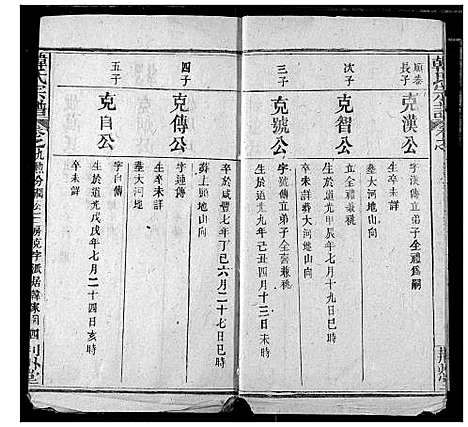 韓氏宗譜
長子
克漢公
字漢傳立弟子全禮為嗣
生卒未詳
次子
克智公
生於道光甲辰年七月十九日巳時
立全禮兼祧
葬大河地山向
三子
克號公
生於道光九年己丑四月十三日未時
字號傳立弟子全喜兼祧
卒未詳葬大河地山向
四子
克傳公
卒於咸豐七年丁巳六月二十七地日巳時
蘇上類地山向
字建傳
生卒未詳
葬大河地
五子
克自公
字自傳
生於道光戊戌年七月二十四日亥時
卒未詳
韓氏宗譜